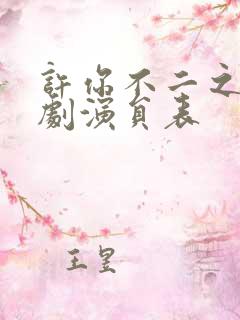 許你不二之
劇演員表
王星